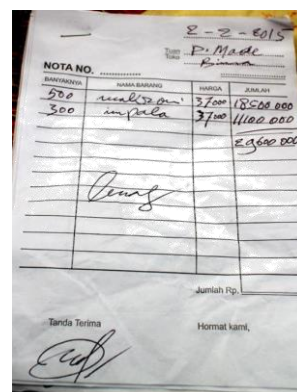 2-2-2015
Tuan
Toko
P. Made
Bima
NOTA NO. ..............
BANYAKNYA NAMA BARANG HARGA JUMLAH
500 37000 18500.000
300 impala 37000 11100.000
29600 000
Jumlah Rp.
Tanda Terima Hormat kami,